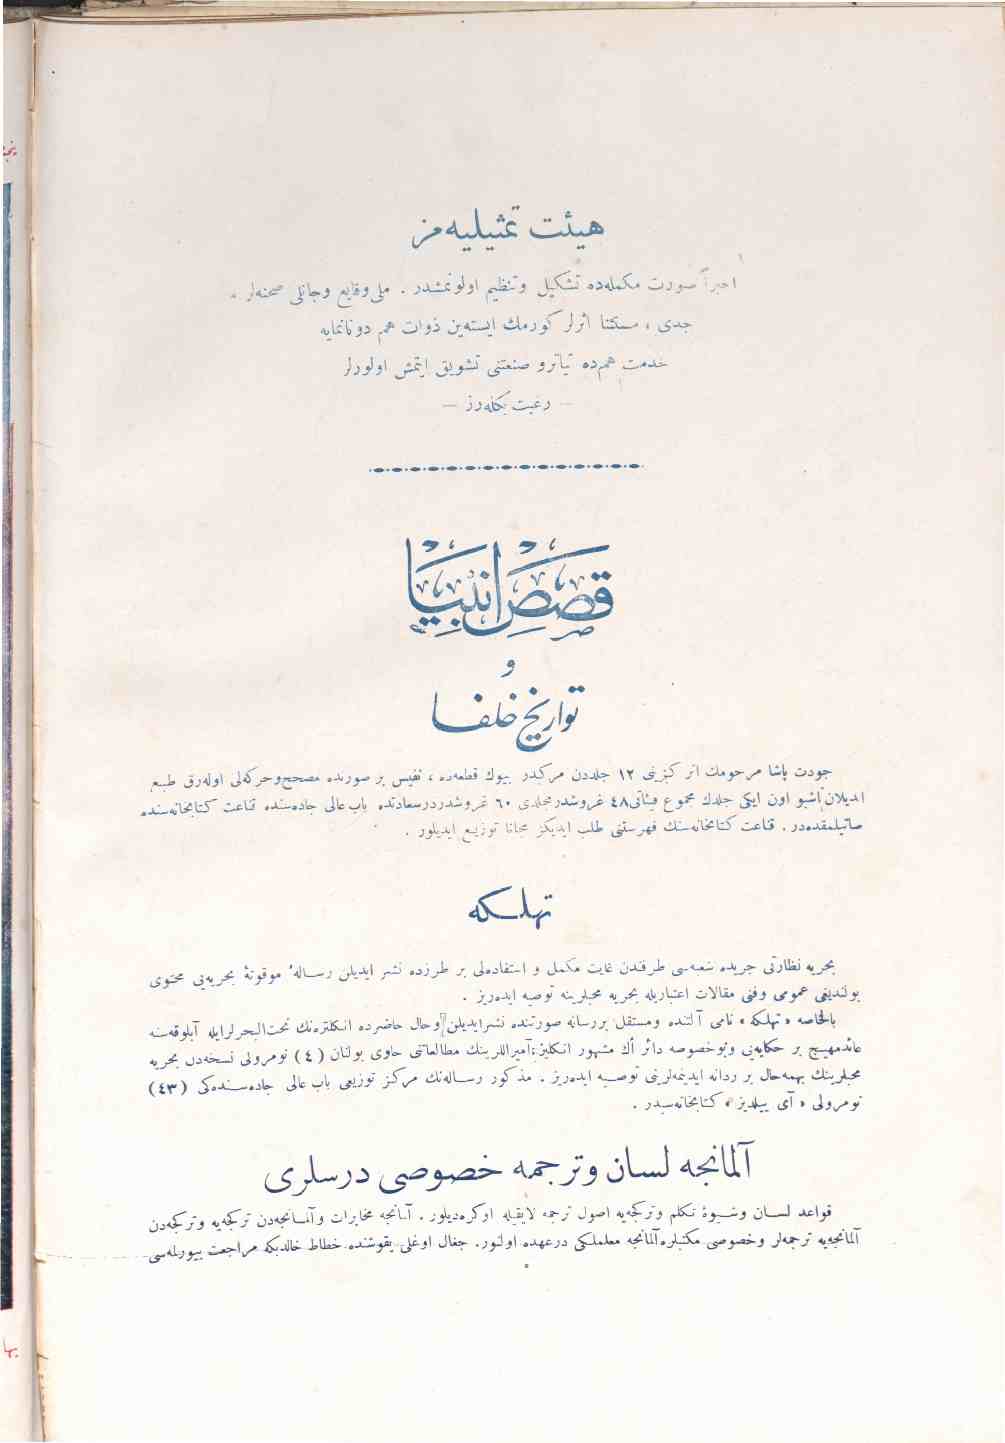 هيئت تمثيليه‌مز
اخيراً صورت مكمله‌ده تشكيل وتنظيم اولونمشدر . ملی وقايع وجانلی صحنه‌لر ،
جدی ، مستثنا اثرلر كورمك ايسته‌ين ذوات هم دونانمايه
خدمت هم‌ده تياترو صنعتنی تشويق ايتمش اولورلر
— رغبت بكله‌رز —
قصص انبيا
و
تواريخ خلفا
جودت پاشا مرحومك اثر كزينی ١٢ جلددن مركبدر بيوك قطعه‌ده ، نفيس بر صورتده مصحح وحركه‌لی اوله‌رق طبع
ايديلان اشبو اون ايكی جلدك مجموع فيئاتی ٤٨ غروشدر مجلدی ٦٠ غروشدر درسعادتده باب عالی جاده‌سنده قناعت كتابخانه‌سنده
صاتيلمقده‌در . قناعت كتابخانه‌سنك فهرستنی طلب ايديكز مجانا توزيع ايديلور .
تهلكه
بحريه نظارتی جريده شعبه‌سی طرفندن غايت مكمل و استفاده‌لی بر طرزده نشر ايديلن رسالهٔ موقوتهٔ بحريه‌يی محتوی
بولنديغی عمومی وفنی مقالات اعتباريله بحريه محبلرينه توصيه ايده‌ريز .
بالخاصه « تهلكه » نامی آلتنده ومستقل بر رساله صورتنده نشر ايديلن وحال حاضرده انكلتره‌نك تحت‌البحرلر ايله آبلوقه‌سنه
عائد مهيج بر حكايه‌يی وبو خصوصه دائر اك مشهور انكليز آميراللرينك مطالعاتنی حاوی بولنان (٤) نومرولی نسخه‌دن بحريه
محبلرينك بهمه‌حال بر ردانه ايدينمه‌لرينی توصيه ايده‌ريز . مذكور رساله‌نك مركز توزيعی باب عالی جاده‌سنده‌كی (٤٣)
نومرولی « آی ييلديز » كتابخانه‌سيدر .
آلمانجه لسان وترجمه خصوصی درسلری
قواعد لسان وشيوهٔ تكلم وتركجه‌يه اصول ترجمه لايقيله اوكره‌ديلور . آلمانجه مخابرات وآلمانجه‌دن تركجه‌يه وتركجه‌دن
آلمانجه‌يه ترجمه‌لر وخصوصی مكتبلره آلمانجه معلملكی درعهده اولنور . جغال اوغلی يقوشنده خطاط خالد بكه مراجعت بيورلمه‌سی